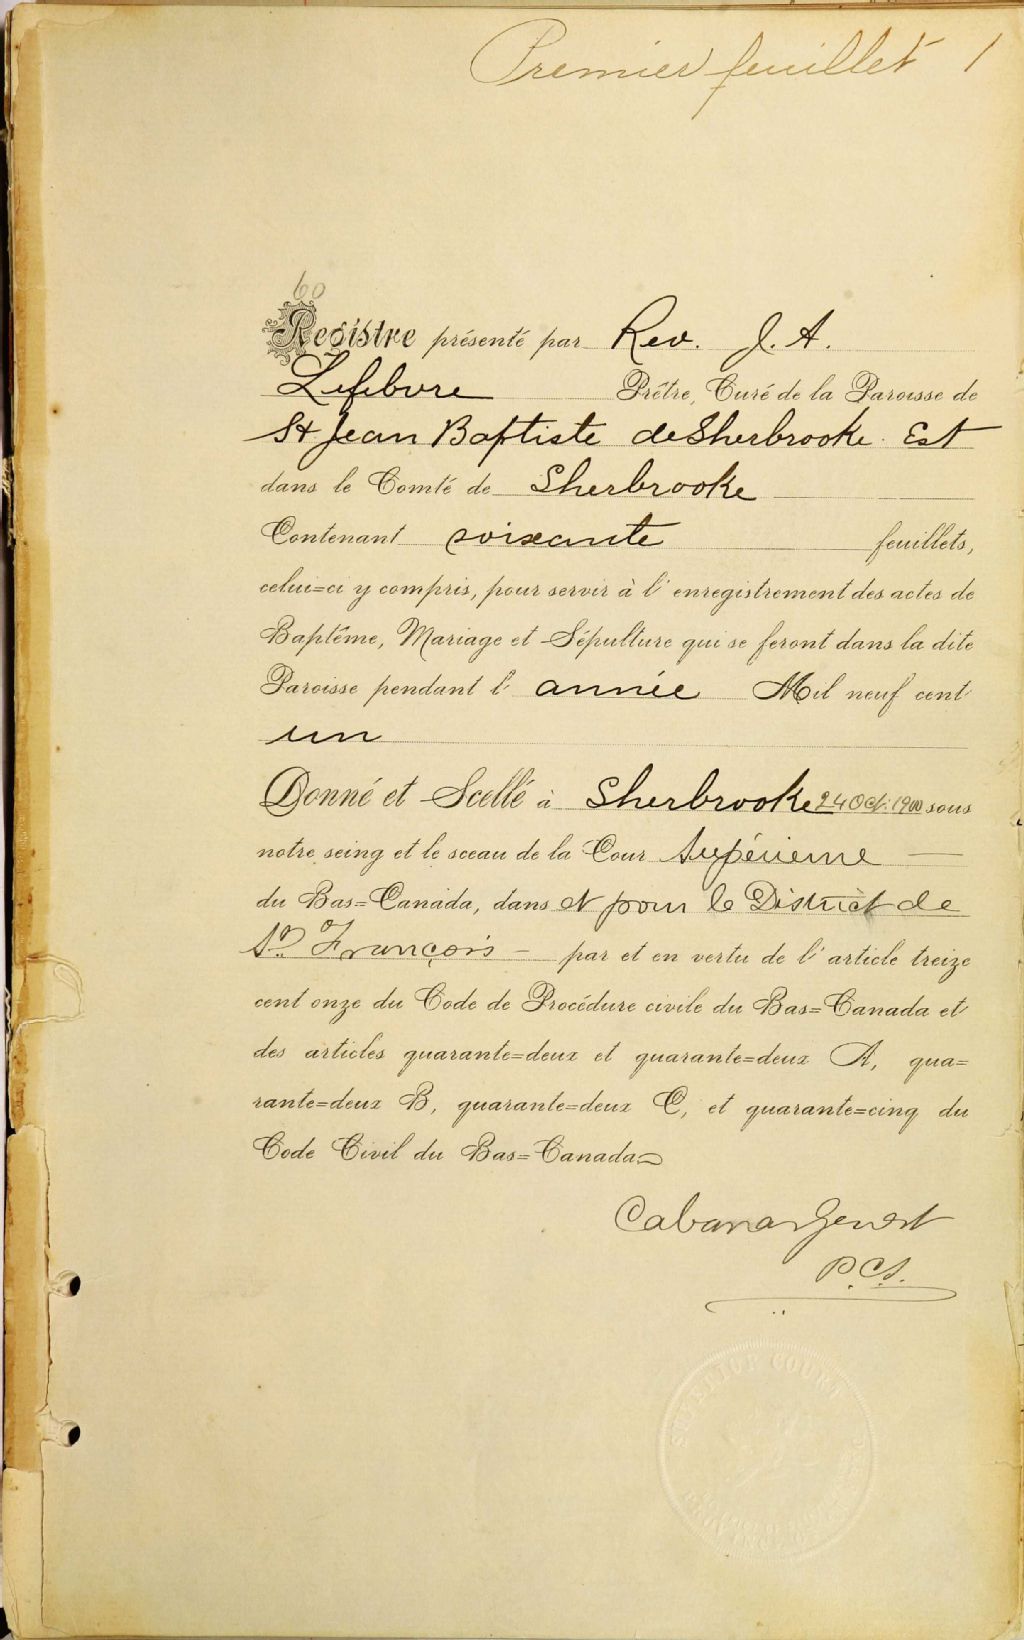 Premier feuillet 1
60
Registre présenté par Rev. J. A.
Lefebvre Prêtre, Curé de la Paroisse de
St Jean Baptiste de Sherbrooke Est
dans le Comté de Sherbrooke
Contenant soixante feuillets,
celui=ci y compris, pour servir à l'enregistrement des actes de
Baptême, Mariage et Sépulture qui se feront dans la dite
Paroisse pendant l'année Mil neuf cent
un
Donné et Scellé à Sherbrooke 24 Oct. 1900 sous
notre seing et le sceau de la Cour Supérieure
du Bas=Canada, dans et pour le District de
St François par et en vertu de l'article treize
cent onze du Code de Procédure civile du Bas=Canada et
des articles quarante=deux et quarante=deux A, qua=
rante=deux B, quarante=deux C, et quarante=cinq du
Code Civil du Bas=Canada
Cabana & Genest
P.C.S.
SUPERIOR COURT